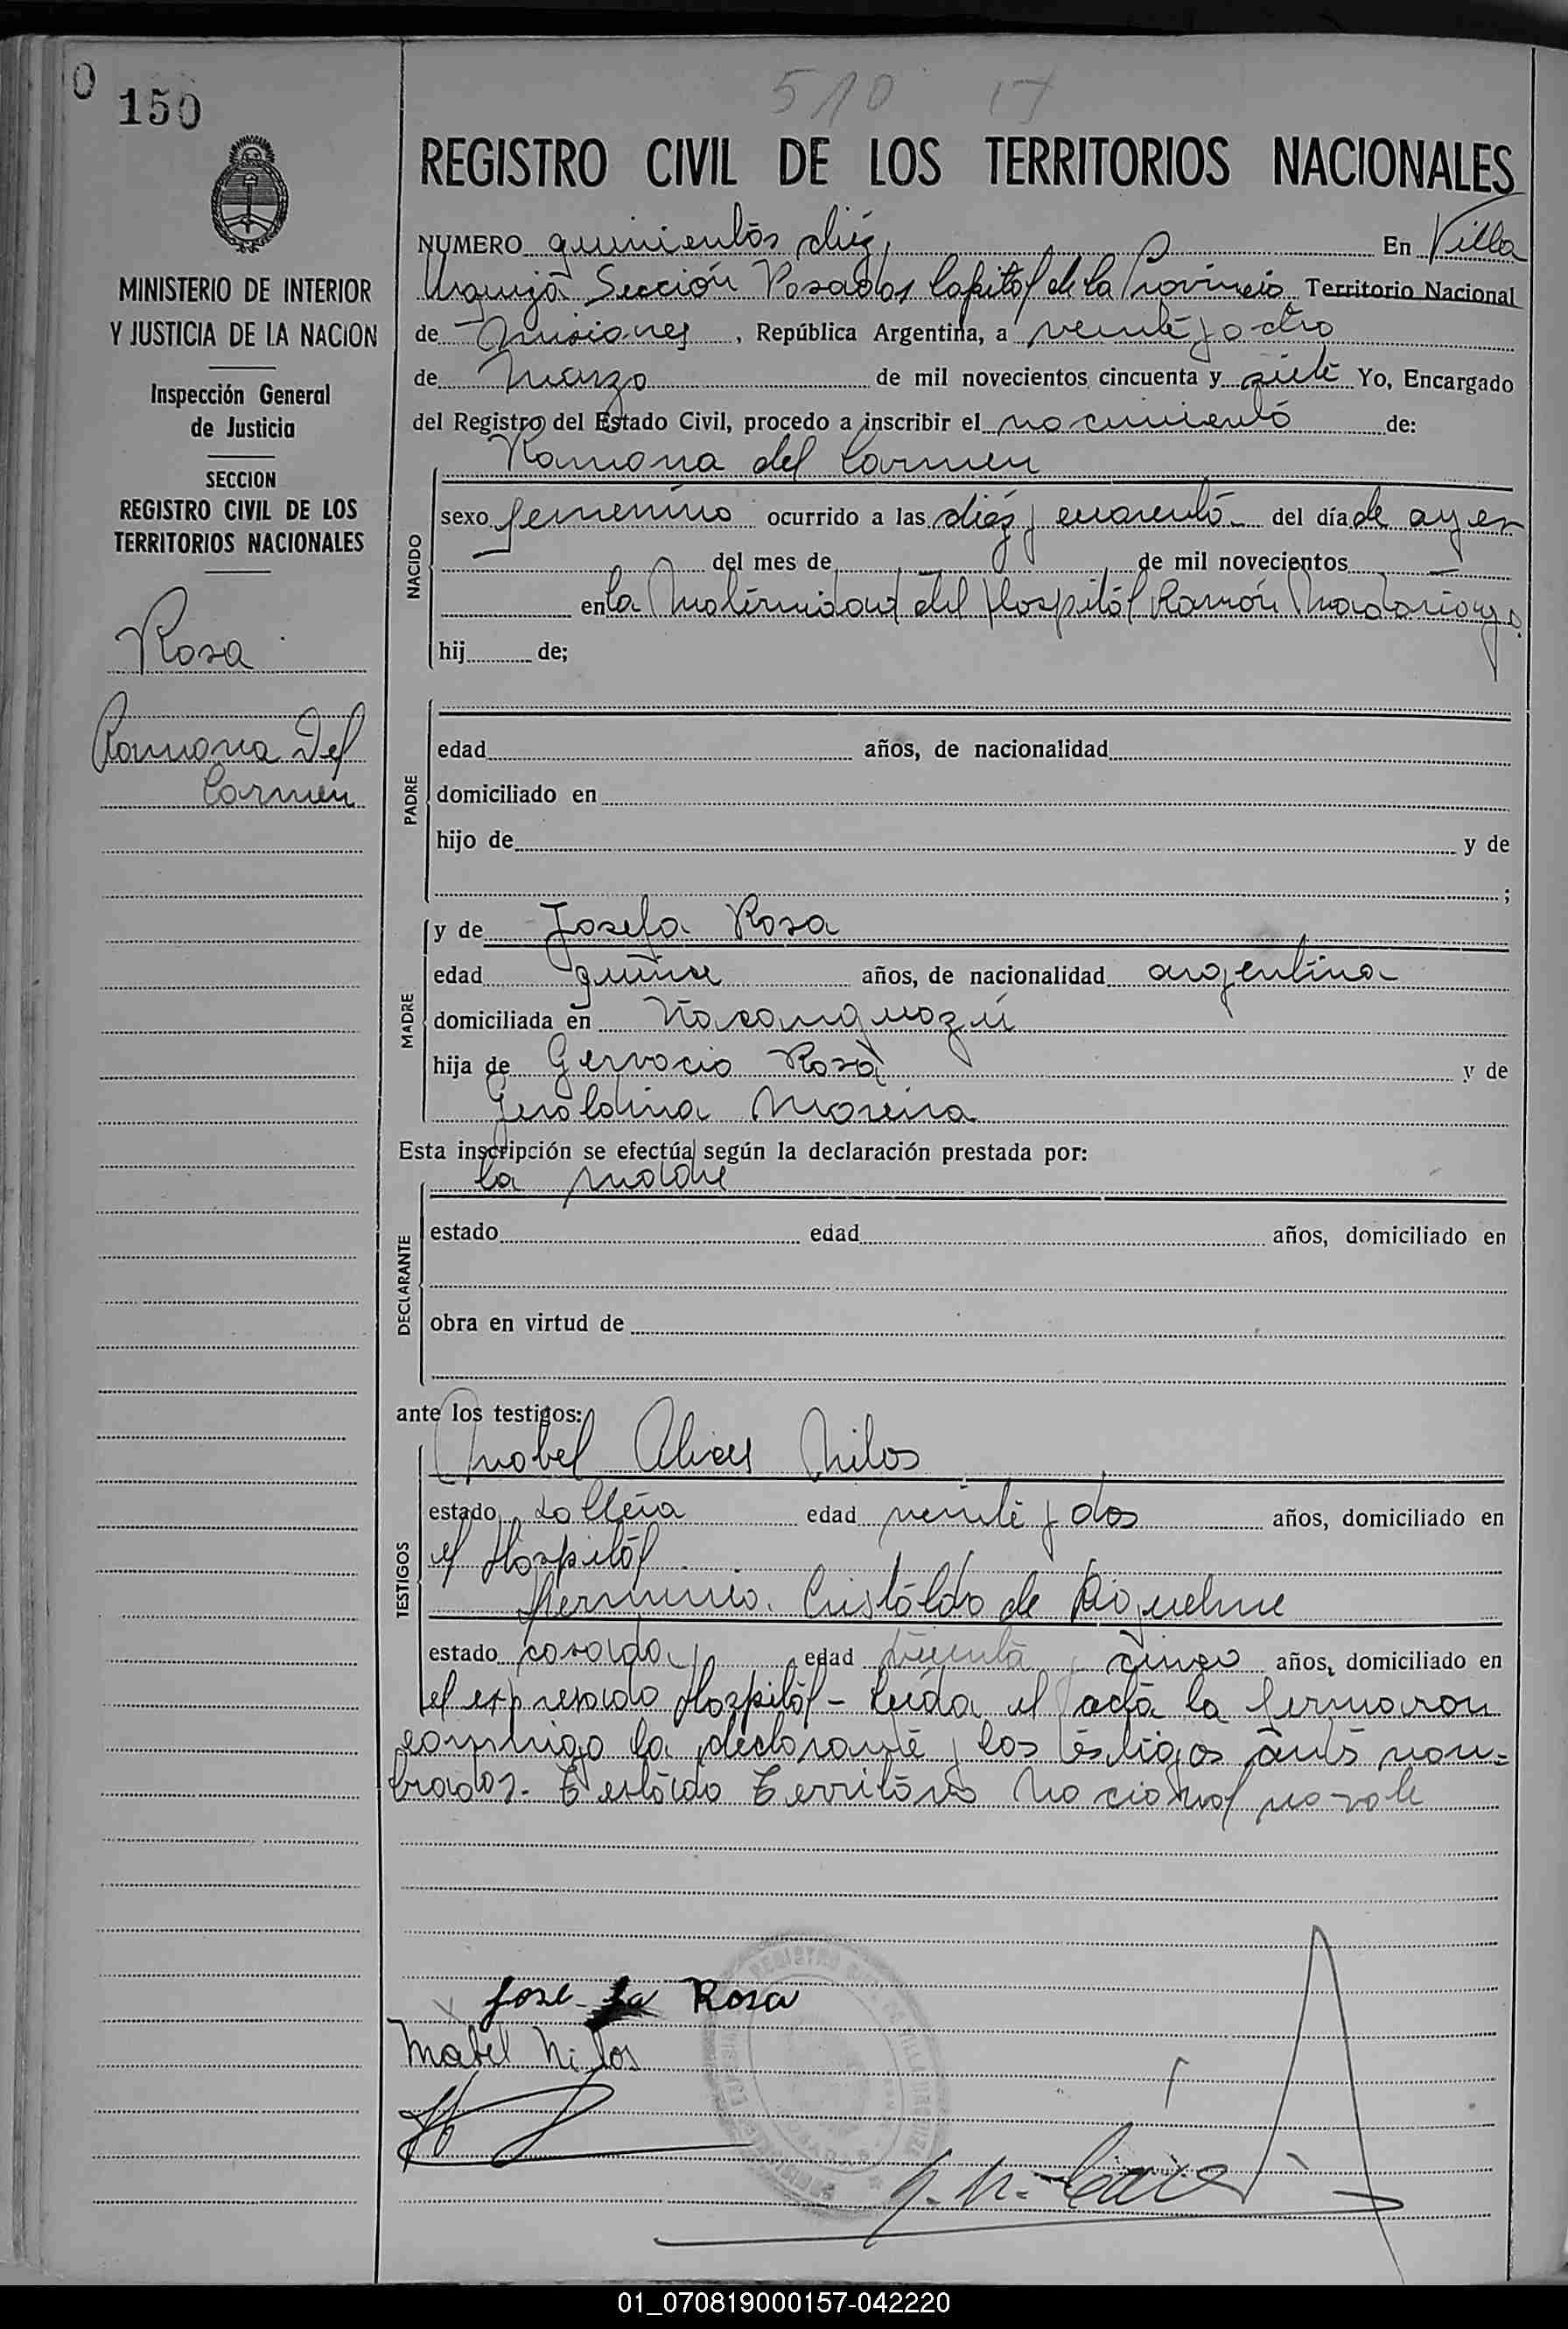 150
510 17
REGISTRO CIVIL DE LOS TERRITORIOS NACIONALES
MINISTERIO DE INTERIOR
Y JUSTICIA DE LA NACION
Inspección General
de Justicia
SECCION
REGISTRO CIVIL DE LOS
TERRITORIOS NACIONALES
Rosa
Ramona Del
Carmen
NUMERO quinientos diez En Villa
Urquiza Sección Posadas Capital de la Provincia Territorio Nacional
de Misiones, República Argentina, a veinte y octro
de Marzo de mil novecientos cincuenta y siete Yo, Encargado
del Registro del Estado Civil, procedo a inscribir el nacimiento de:
Ramona del Carmen
NACIDO
sexo femenino ocurrido a las diez y cuarenta- del día de ayer
del mes de de mil novecientos
en la Maternidad del Hospital Ramón Madariaga.
hij de;
PADRE
edad años, de nacionalidad
domiciliado en
hijo de y de
;
MADRE
y de Josefa Rosa
edad quince años, de nacionalidad argentina
domiciliada en Ñacanguazú
hija de Gervacio Rosa y de
Geraldina Moreira
Esta inscripción se efectúa según la declaración prestada por:
la madre
DECLARANTE
estado edad años, domiciliado en
obra en virtud de
ante los testigos:
TESTIGOS
Mabel Alves Nilos
estado soltera edad veinte y dos años, domiciliado en
el Hospital
Herminia Cristaldo de Riquelme
estado casada edad treinta y cinco años, domiciliado en
el expresado Hospital- Leída el acta la firmaron
conmigo la declarante y los testigos ants nom=
brados.- Testado Territorio Nacional no vale
Josefa Rosa
Mabel Nilos
REGISTRO CIVIL DE VILLA URQUIZA
POSADAS
01_070819000157-042220